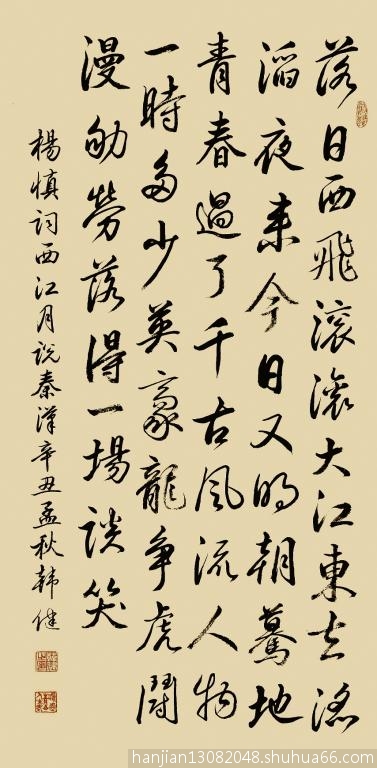 落日西飛滾滾大江東去滔
滔夜來今日又明朝驀地
青春過了千古風流人物
一時多少英豪龍爭虎鬪
漫劬勞落得一場談笑
楊慎詞西江月說秦漢辛丑孟秋韓健
hanjian13082048.shuhua66.com